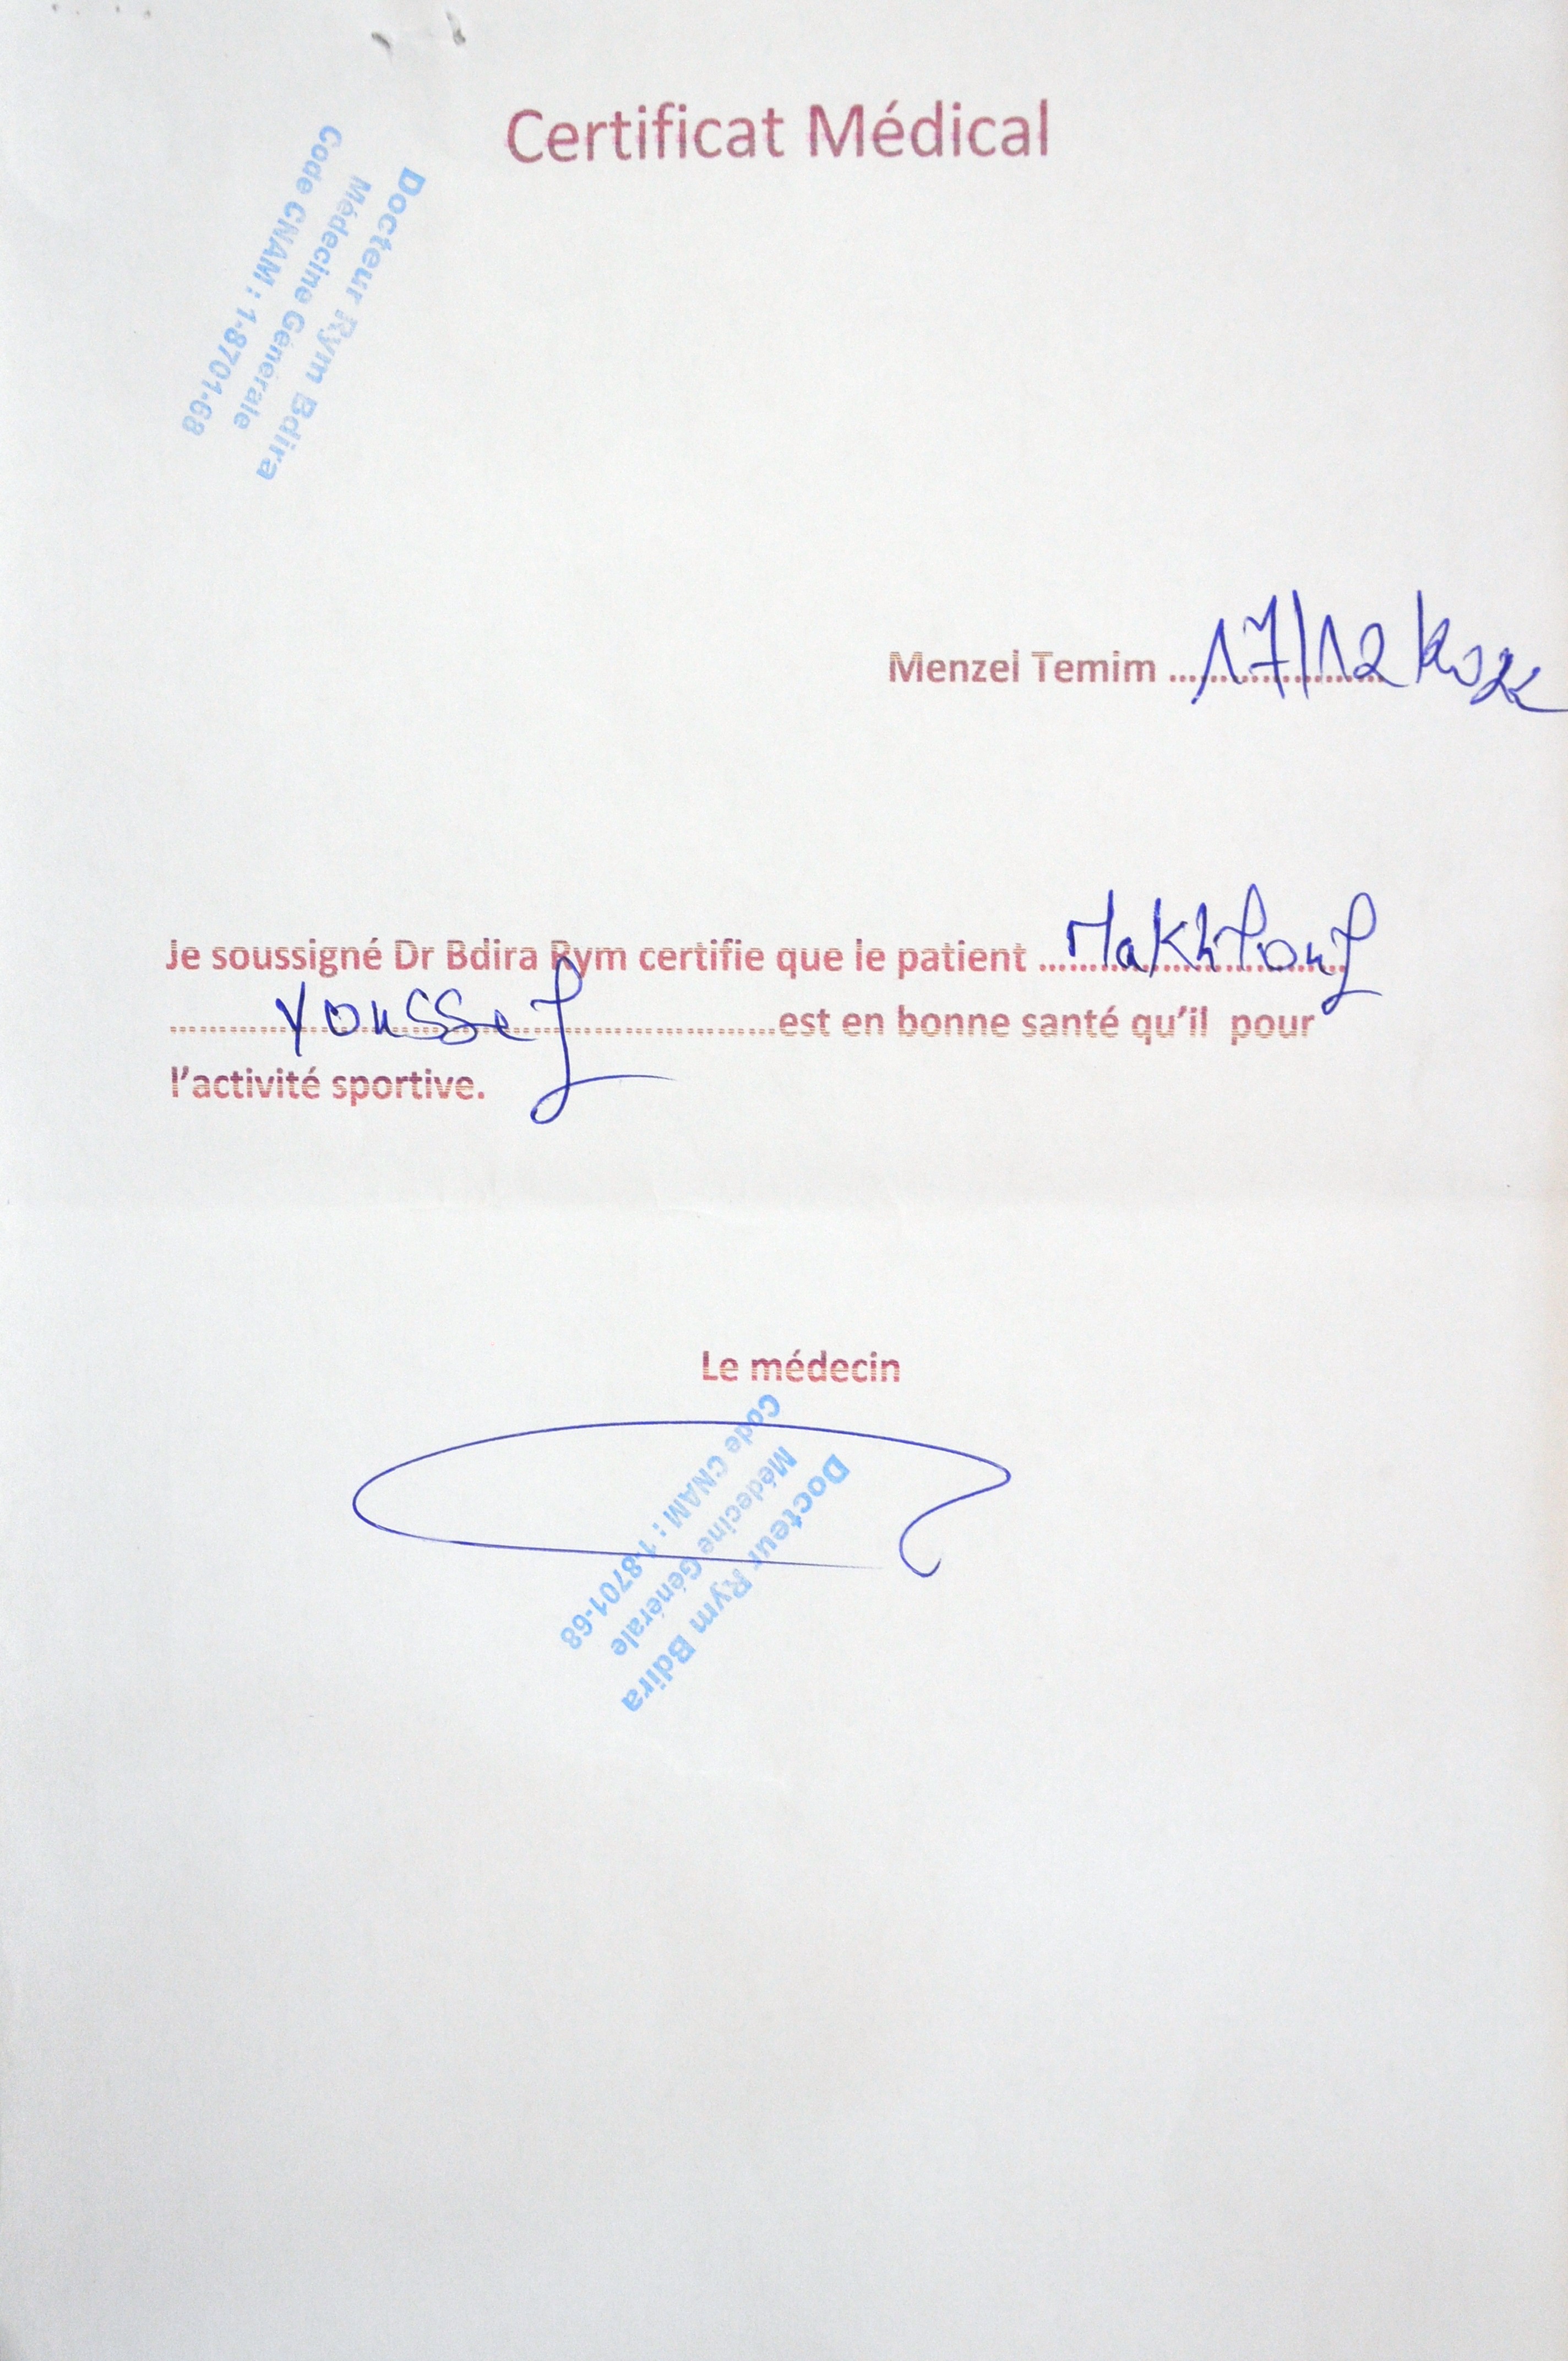 Certificat Médical
Docteur Rym Bdira
Médecine Générale
Code CNAM : 1-8701-68
Menzel Temim ........................ 17/12/2022
Je soussigné Dr Bdira Rym certifie que le patient ................................ Makhlouf
Youssef ................................ est en bonne santé qu'il pour
l'activité sportive.
Le médecin
Docteur Rym Bdira
Médecine Générale
Code CNAM : 1-8701-68